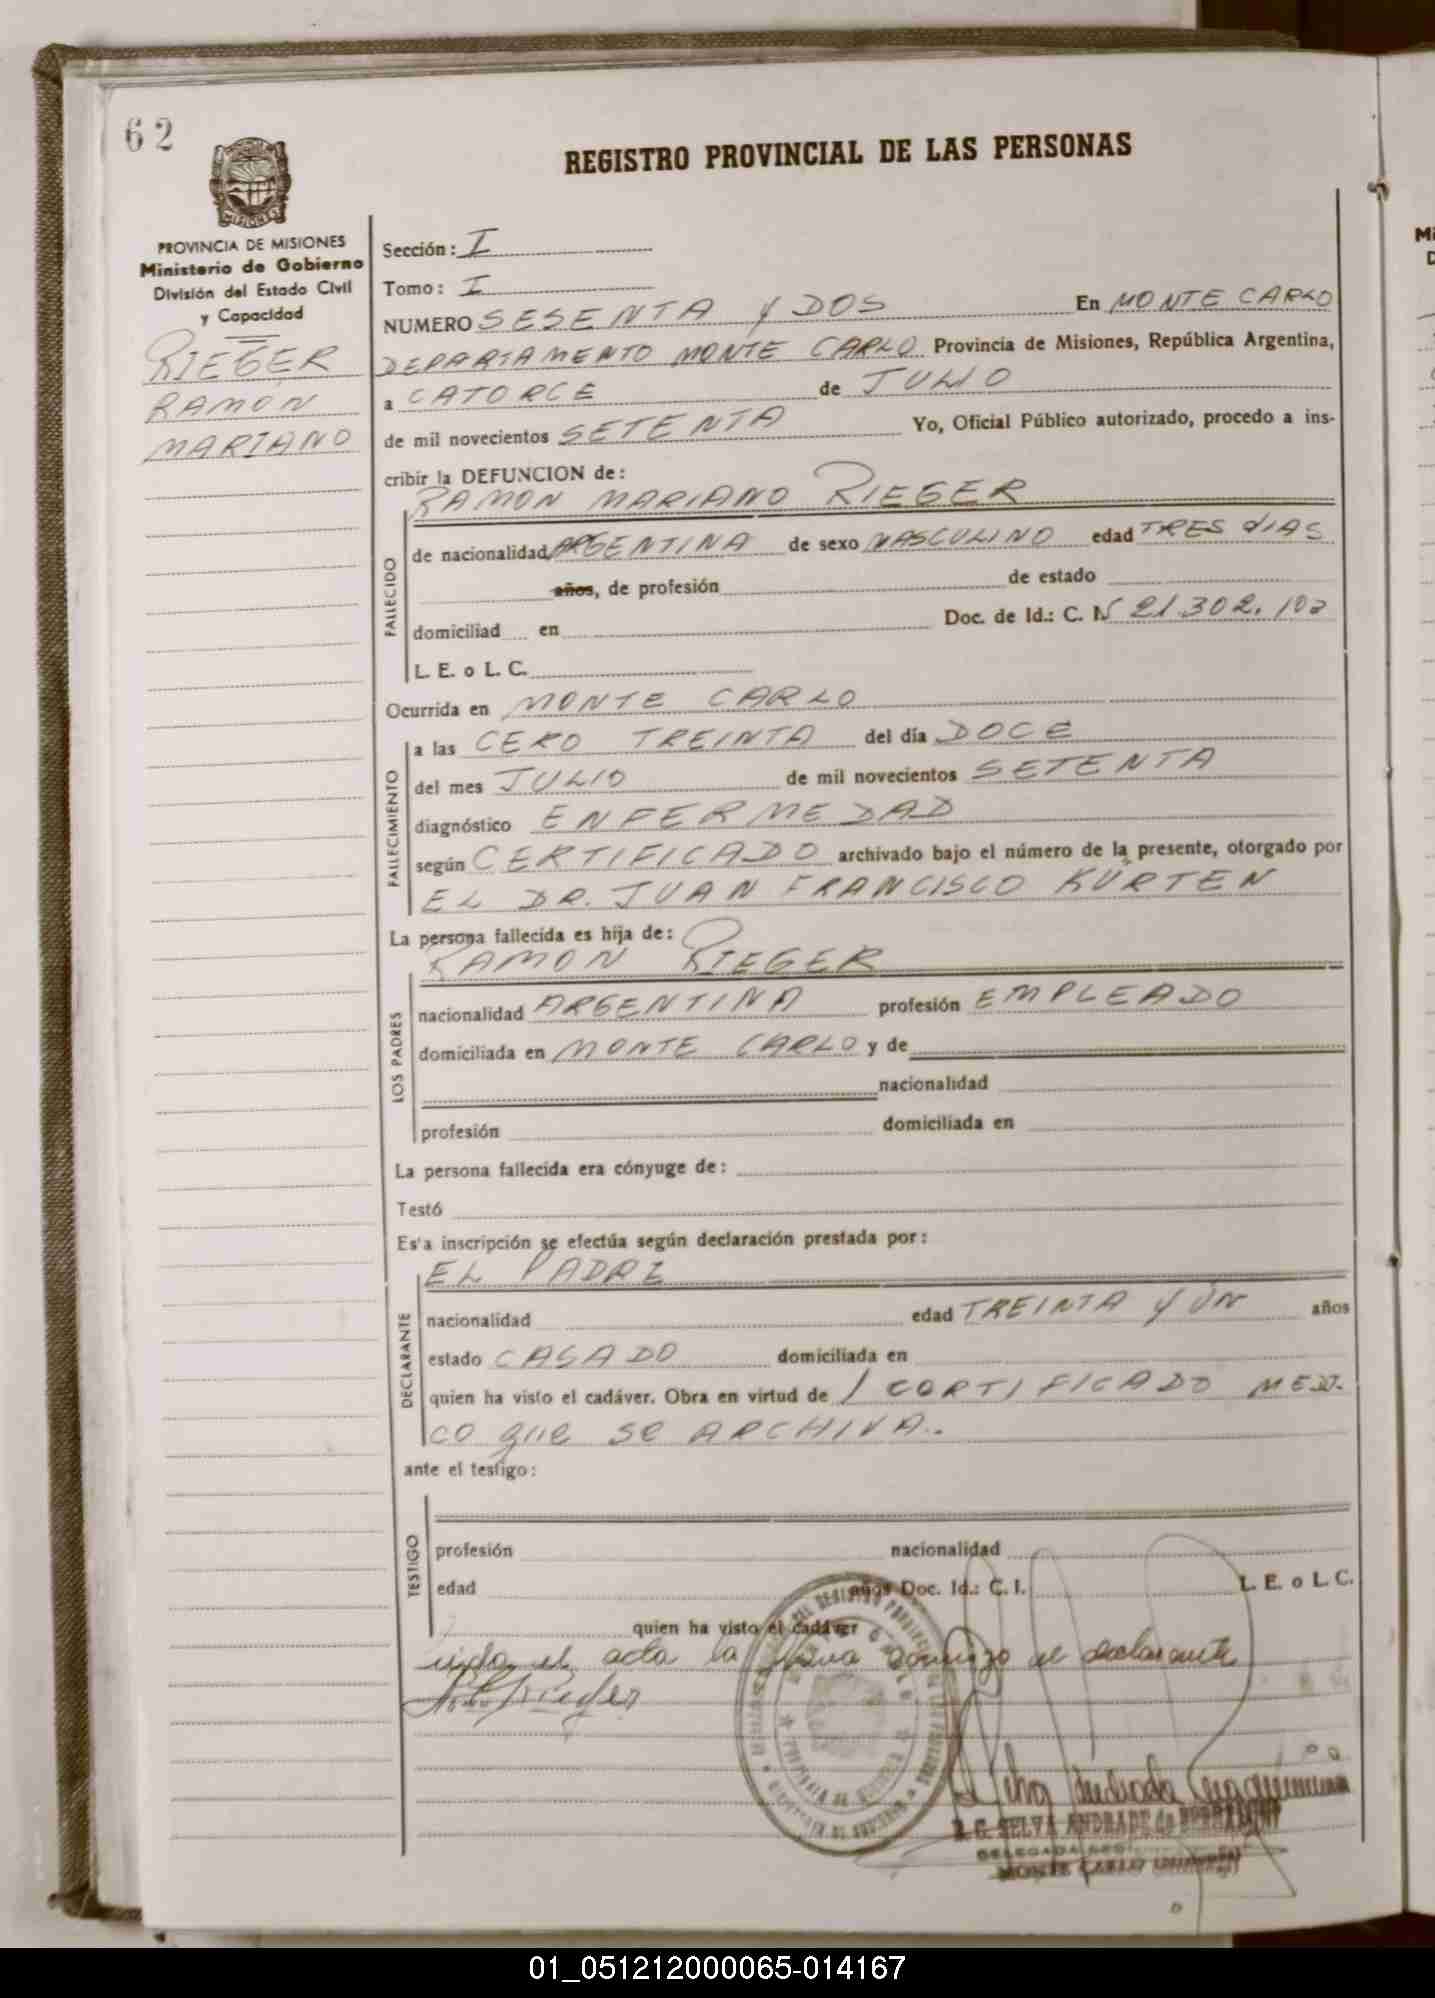 62
REGISTRO PROVINCIAL DE LAS PERSONAS
MISIONES
PROVINCIA DE MISIONES
Ministerio de Gobierno
División del Estado Civil
y Capacidad
RIEGER
RAMON
MARIANO
Sección: I
Tomo: I
NUMERO SESENTA Y DOS En MONTE CARLO
DEPARTAMENTO MONTE CARLO Provincia de Misiones, República Argentina,
a CATORCE de JULIO
de mil novecientos SETENTA Yo, Oficial Público autorizado, procedo a ins-
cribir la DEFUNCION de:
RAMON MARIANO RIEGER
FALLECIDO
de nacionalidad ARGENTINA de sexo MASCULINO edad TRES DIAS
años, de profesión de estado
domiciliad en Doc. de Id.: C. N 21.302.102
L. E. o L. C.
Ocurrida en MONTE CARLO
FALLECIMIENTO
a las CERO TREINTA del día DOCE
del mes JULIO de mil novecientos SETENTA
diagnóstico ENFERMEDAD
según CERTIFICADO archivado bajo el número de la presente, otorgado por
EL DR. JUAN FRANCISCO KURTEN
La persona fallecida es hija de:
RAMON RIEGER
LOS PADRES
nacionalidad ARGENTINA profesión EMPLEADO
domiciliada en MONTE CARLO y de
nacionalidad
profesión domiciliada en
La persona fallecida era cónyuge de:
Testó
Es'a inscripción se efectúa según declaración prestada por:
EL PADRE
DECLARANTE
nacionalidad edad TREINTA Y UN años
estado CASADO domiciliada en
quien ha visto el cadáver. Obra en virtud de 1 CERTIFICADO MEDI.
CO que SE ARCHIVA.
ante el testigo:
TESTIGO
profesión nacionalidad
edad años Doc. Id.: C. I. L. E. o L. C.
quien ha visto el cadáver
el acta la firma conmigo el declarante
S. G. SELVA ANDRADE de
DELEGADA
MONTE CARLO (MISIONES)
01_051212000065-014167